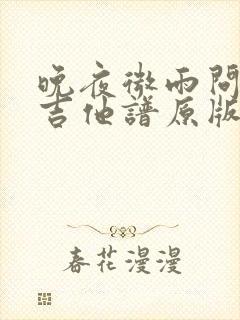 晚夜微雨問
吉他譜原版
春花漫漫